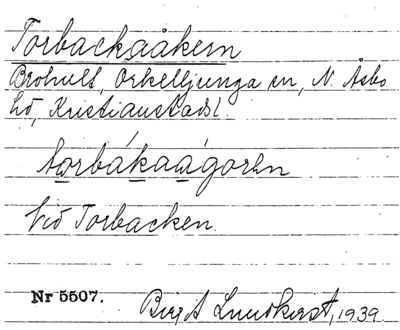 Torbackaåkern
Brohult, Örkelljunga sn, N. Åsbo
hd, Kristianstads l.
torbákaågorən
Vid Torbacken.
Nr 5507. Birgit Lundkvist, 1939.